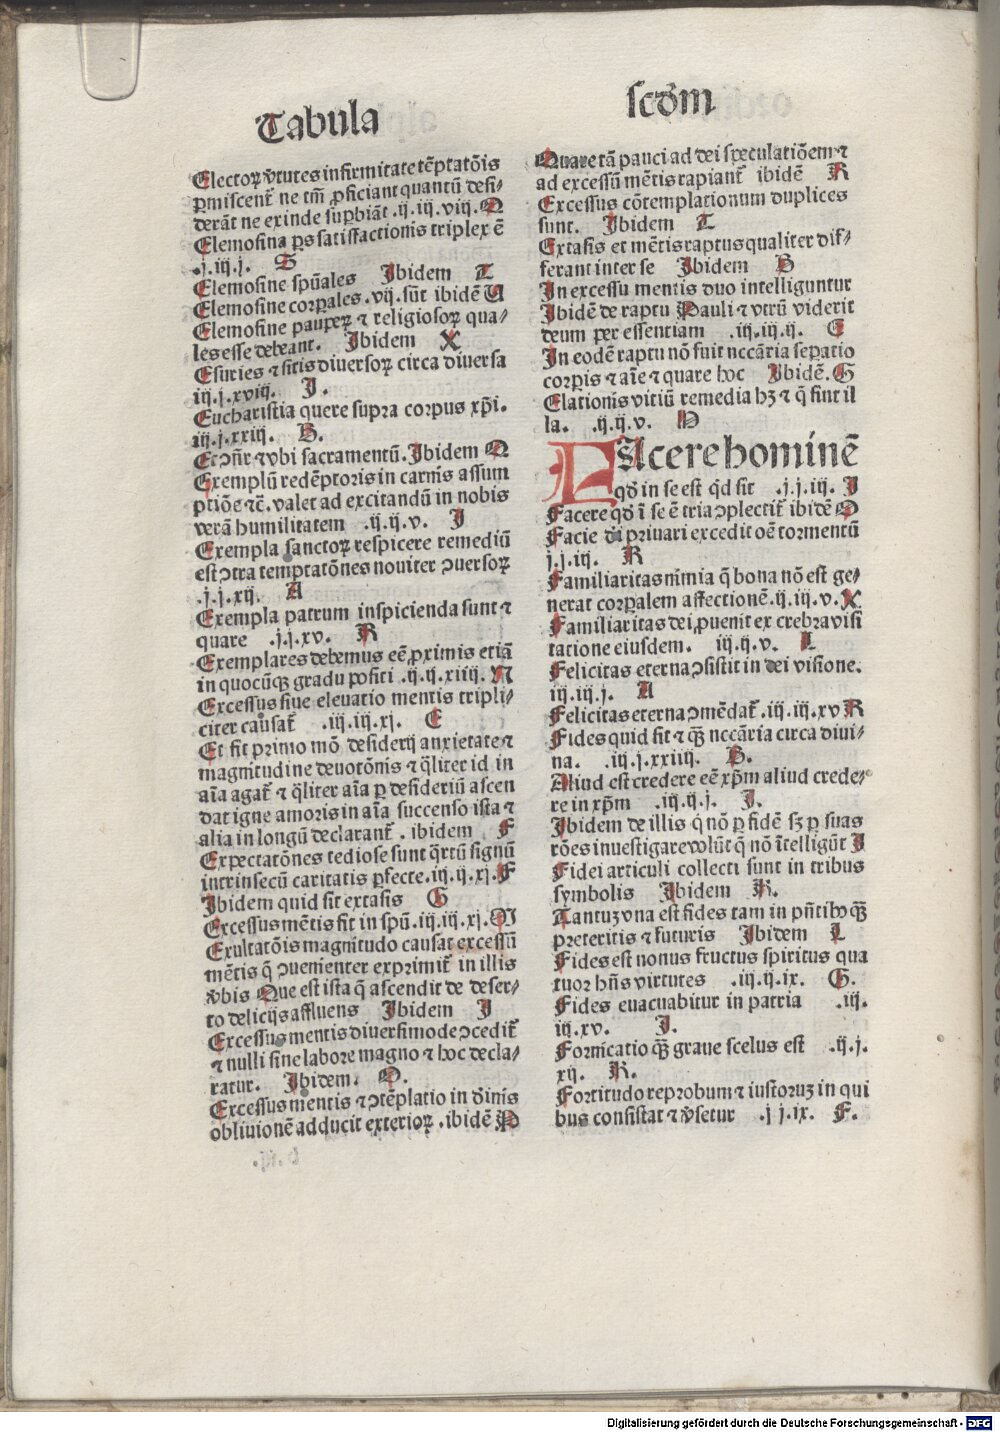 Tabula
Electoꝝ v̄tutes infirmitate tētatōis
ꝑmiscent᷑ ne tm̄ ꝓficiant quantū desi⸗
derāt ne exinde suꝑbiāt .ij.iij.viij. Q
Elemosina ꝑs satisfactionis triplex ē
.j.iij.j. S
Elemosine spūales Ibidem T
Elemosine corꝑales .vij. sūt ibidē U
Elemosine pauꝑeꝝ ⁊ religiosoꝝ qua⸗
les esse debeant. Ibidem X
Esuries ⁊ sitis diuersoꝝ circa diuersa
iij.j.xviij. I.
Eucharistia quere supra corpus xp̄i.
iij.j.xxiij. B.
Et ꝯn̄r ⁊ vbi sacramentū. Ibidem Q
Exemplū redēptoris in carnis assum
ptiōe ⁊c̄. valet ad excitandū in nobis
verā humilitatem .ij.ij.v. I
Exempla sanctoꝝ respicere remediū
est ꝯtra temptatōnes nouiter ꝯuersoꝝ
.j.j.xij. A
Exempla patrum inspicienda sunt ⁊
quare .j.j.xv. R
Exemplares debemus eē ꝓximis etiā
in quocūqꝫ gradu positi .ij.ij.xiiij. M
Excessus siue eleuatio mentis tripli⸗
citer causat᷑ .iij.iij.xj. E
Et fit primo mō desiderij anxietate ⁊
magnitudine deuotōnis ⁊ qͥliter id in
aīa agat᷑ ⁊ qͥliter aīa ꝑ desideriū ascen
dat igne amoris in aīa succenso ista ⁊
alia in longū declarant᷑. ibidem F
Expectatōnes tediose sunt qͥrtū signū
intrinsecū caritatis ꝑfecte.iij.ij.xj. F
Ibidem quid sit extasis G
Excessus mētis fit in spū.iij.iij.xj. M
Exultatōis magnitudo causat excessū
mētis q̄ ꝯuenienter exprimit᷑ in illis
v̄bis Que est ista q̄ ascendit de deser⸗
to delicijs affluens Ibidem I
Excessus mentis diuersimode ꝯcedit᷑
⁊ nulli sine labore magno ⁊ hoc decla⸗
ratur. Ibidem. O.
Excessus mentis ⁊ ꝯtēplatio in diuīis
obliuionē adducit exterioꝝ .ibidē P
scd̄m
Quare tā pauci ad dei speculatiōem ⁊
ad excessū mētis rapiant᷑ ibidē R
Excessus cōtemplationum duplices
sunt. Ibidem T
Extasis et mētis raptus qualiter dif⸗
ferant inter se Ibidem B
In excessu mentis duo intelliguntur
Ibidē de raptu Pauli ⁊ vtrū viderit
deum per essentiam .iij.iij.ij. E
In eodē raptu nō fuit nccāria seꝑatio
corꝑis ⁊ aīe ⁊ quare hoc Ibidē. G
Elationis vitiū remedia hꝫ ⁊ q̄ sint il
la. .ij.ij.v. H
FAcere hominē
qd̄ in se est qd̄ sit .j.j.iij. I
Facere qd̄ ī se ē tria ꝯplectit᷑ ibidē O
Facie dī priuari excedit oē tormentū
j.j.iij. R
Familiaritas nimia q̄ bona nō est ge⸗
nerat corꝑalem affectionē.ij.iij.v. X
Familiaritas dei ꝓuenit ex crebra visi
tatione eiusdem. iij.ij.v. L
Felicitas eterna ꝯsistit in dei visione.
iij.iij.j. A
Felicitas eterna ꝯmēdat᷑.iij.iij.xv R
Fides quid sit ⁊ qꝫ̄ nccāria circa diui⸗
na. .iij.j.xxiiij. B.
Aliud est credere eē xp̄m aliud crede⸗
re in xp̄m .iij.ij.j. I.
Ibidem de illis q̄ nō ꝑ fidē sꝫ ꝑ suas
rōes inuestigare volūt q̄ nō ītelligūt I
Fidei articuli collecti sunt in tribus
symbolis Ibidem R.
Tantuꝫ vna est fides tam in pn̄tibꝰ qꝫ̄
preteritis ⁊ futuris Ibidem L
Fides est nonus fructus spiritus qua
tuor hn̄s virtutes .iij.ij.ix. G.
Fides euacuabitur in patria .iij.
iij.xv. I.
Fornicatio qꝫ̄ graue scelus est .ij.j.
xij. R.
Fortitudo reproborum ⁊ iustoruꝫ in qui
bus consistat ⁊ v̄setur .j j.ix. F.
Digitalisierung gefördert durch die Deutsche Forschungsgemeinschaft - DFG